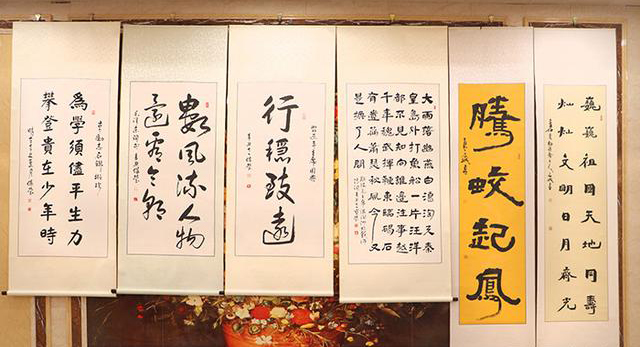 為學須儘平生力
攀登貴在少年時
數風流人物
還看今朝
行穩致遠
大雨落幽燕白浪滔天秦
皇島外打魚船一片汪洋
都不見知向誰邊往事越
千年魏武揮鞭東臨碣石
有遺篇蕭瑟秋風今又
是換了人間
騰蛟起鳳
巍巍祖國天地同壽
灿灿文明日月齊光